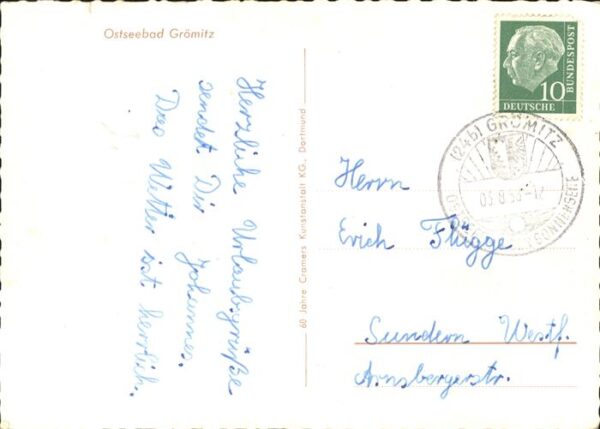 Ostseebad Grömitz
Herzliche Urlaubsgrüße
sendet Dir
Johannes.
Das Wetter ist herrlich.
60 Jahre Cramers Kunstanstalt KG., Dortmund
10
DEUTSCHE
BUNDESPOST
(24b) GRÖMITZ
SONNENSEITE
Herrn
Erich Flügge
Sundern Westf.
Arnsbergerstr.